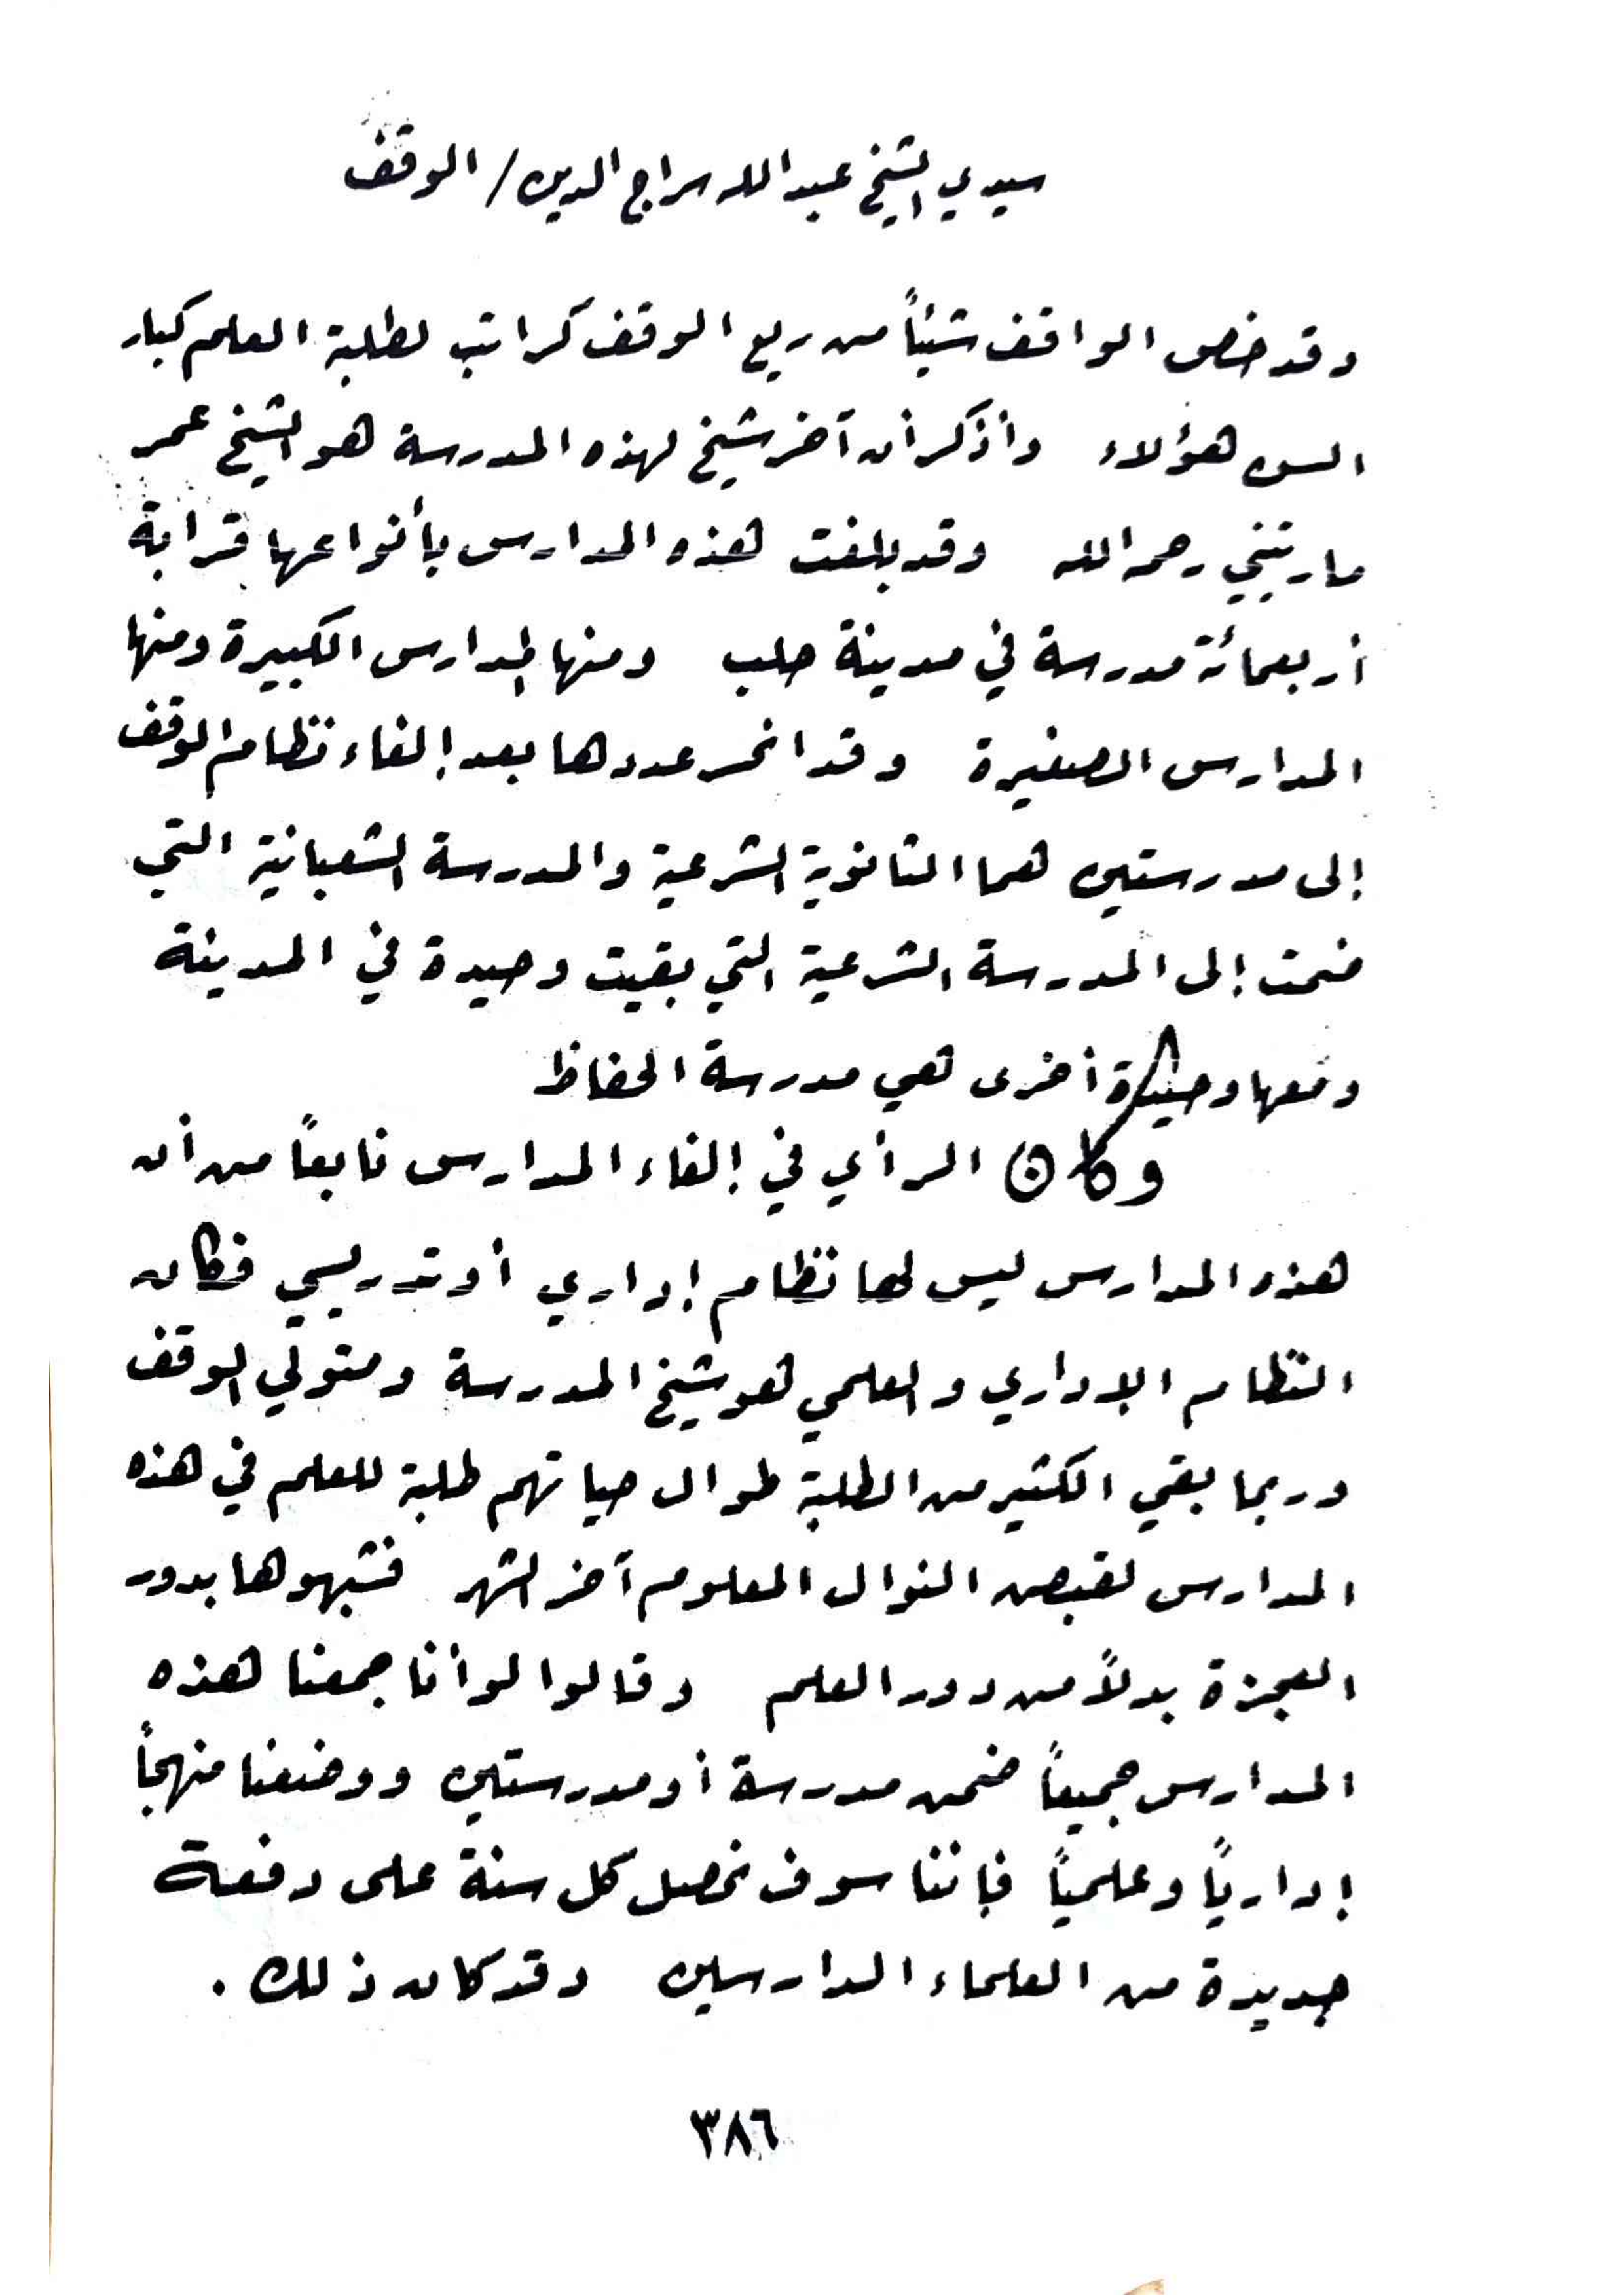 سيدي الشيخ عبد الله سراج الدين / الوقف
وقد خص الواقف شيئاً من ريع الوقف كراتب لطلبة العلم كبار
السن هؤلاء وأذكر أن آخر شيخ لهذه المدرسة هو الشيخ عمر
مارتيني رحمه الله وقد بلغت هذه المدارس بأنواعها قرابة
أربعمائة مدرسة في مدينة حلب ومنها المدارس الكبيرة ومنها
المدارس الصغيرة وقد انحسر عددها بعد إلغاء نظام الوقف
إلى مدرستين هما الثانوية الشرعية والمدرسة الشعبانية التي
ضمت إلى المدرسة الشرعية التي بقيت وحيدة في المدينة
ومعها وحيدة أخرى هي مدرسة الحفاظ
وكان الرأي في إلغاء المدارس نابعاً من أن
هذه المدارس ليس لها نظام إداري أو تدريسي فكان
النظام الإداري والعلمي هو شيخ المدرسة ومتولي الوقف
وربما بقي الكثير من الطلبة طوال حياتهم طلبة للعلم في هذه
المدارس لقبض النوال المعلوم آخر الشهر فشبهوها بدور
العجزة بدلاً من دور العلم وقالوا لو أنا جمعنا هذه
المدارس جميعاً ضمن مدرسة أو مدرستين ووضعنا منهجاً
إدارياً وعلمياً فإننا سوف نحصل كل سنة على دفعة
جديدة من العلماء الدارسين وقد كان ذلك .
٣٨٦